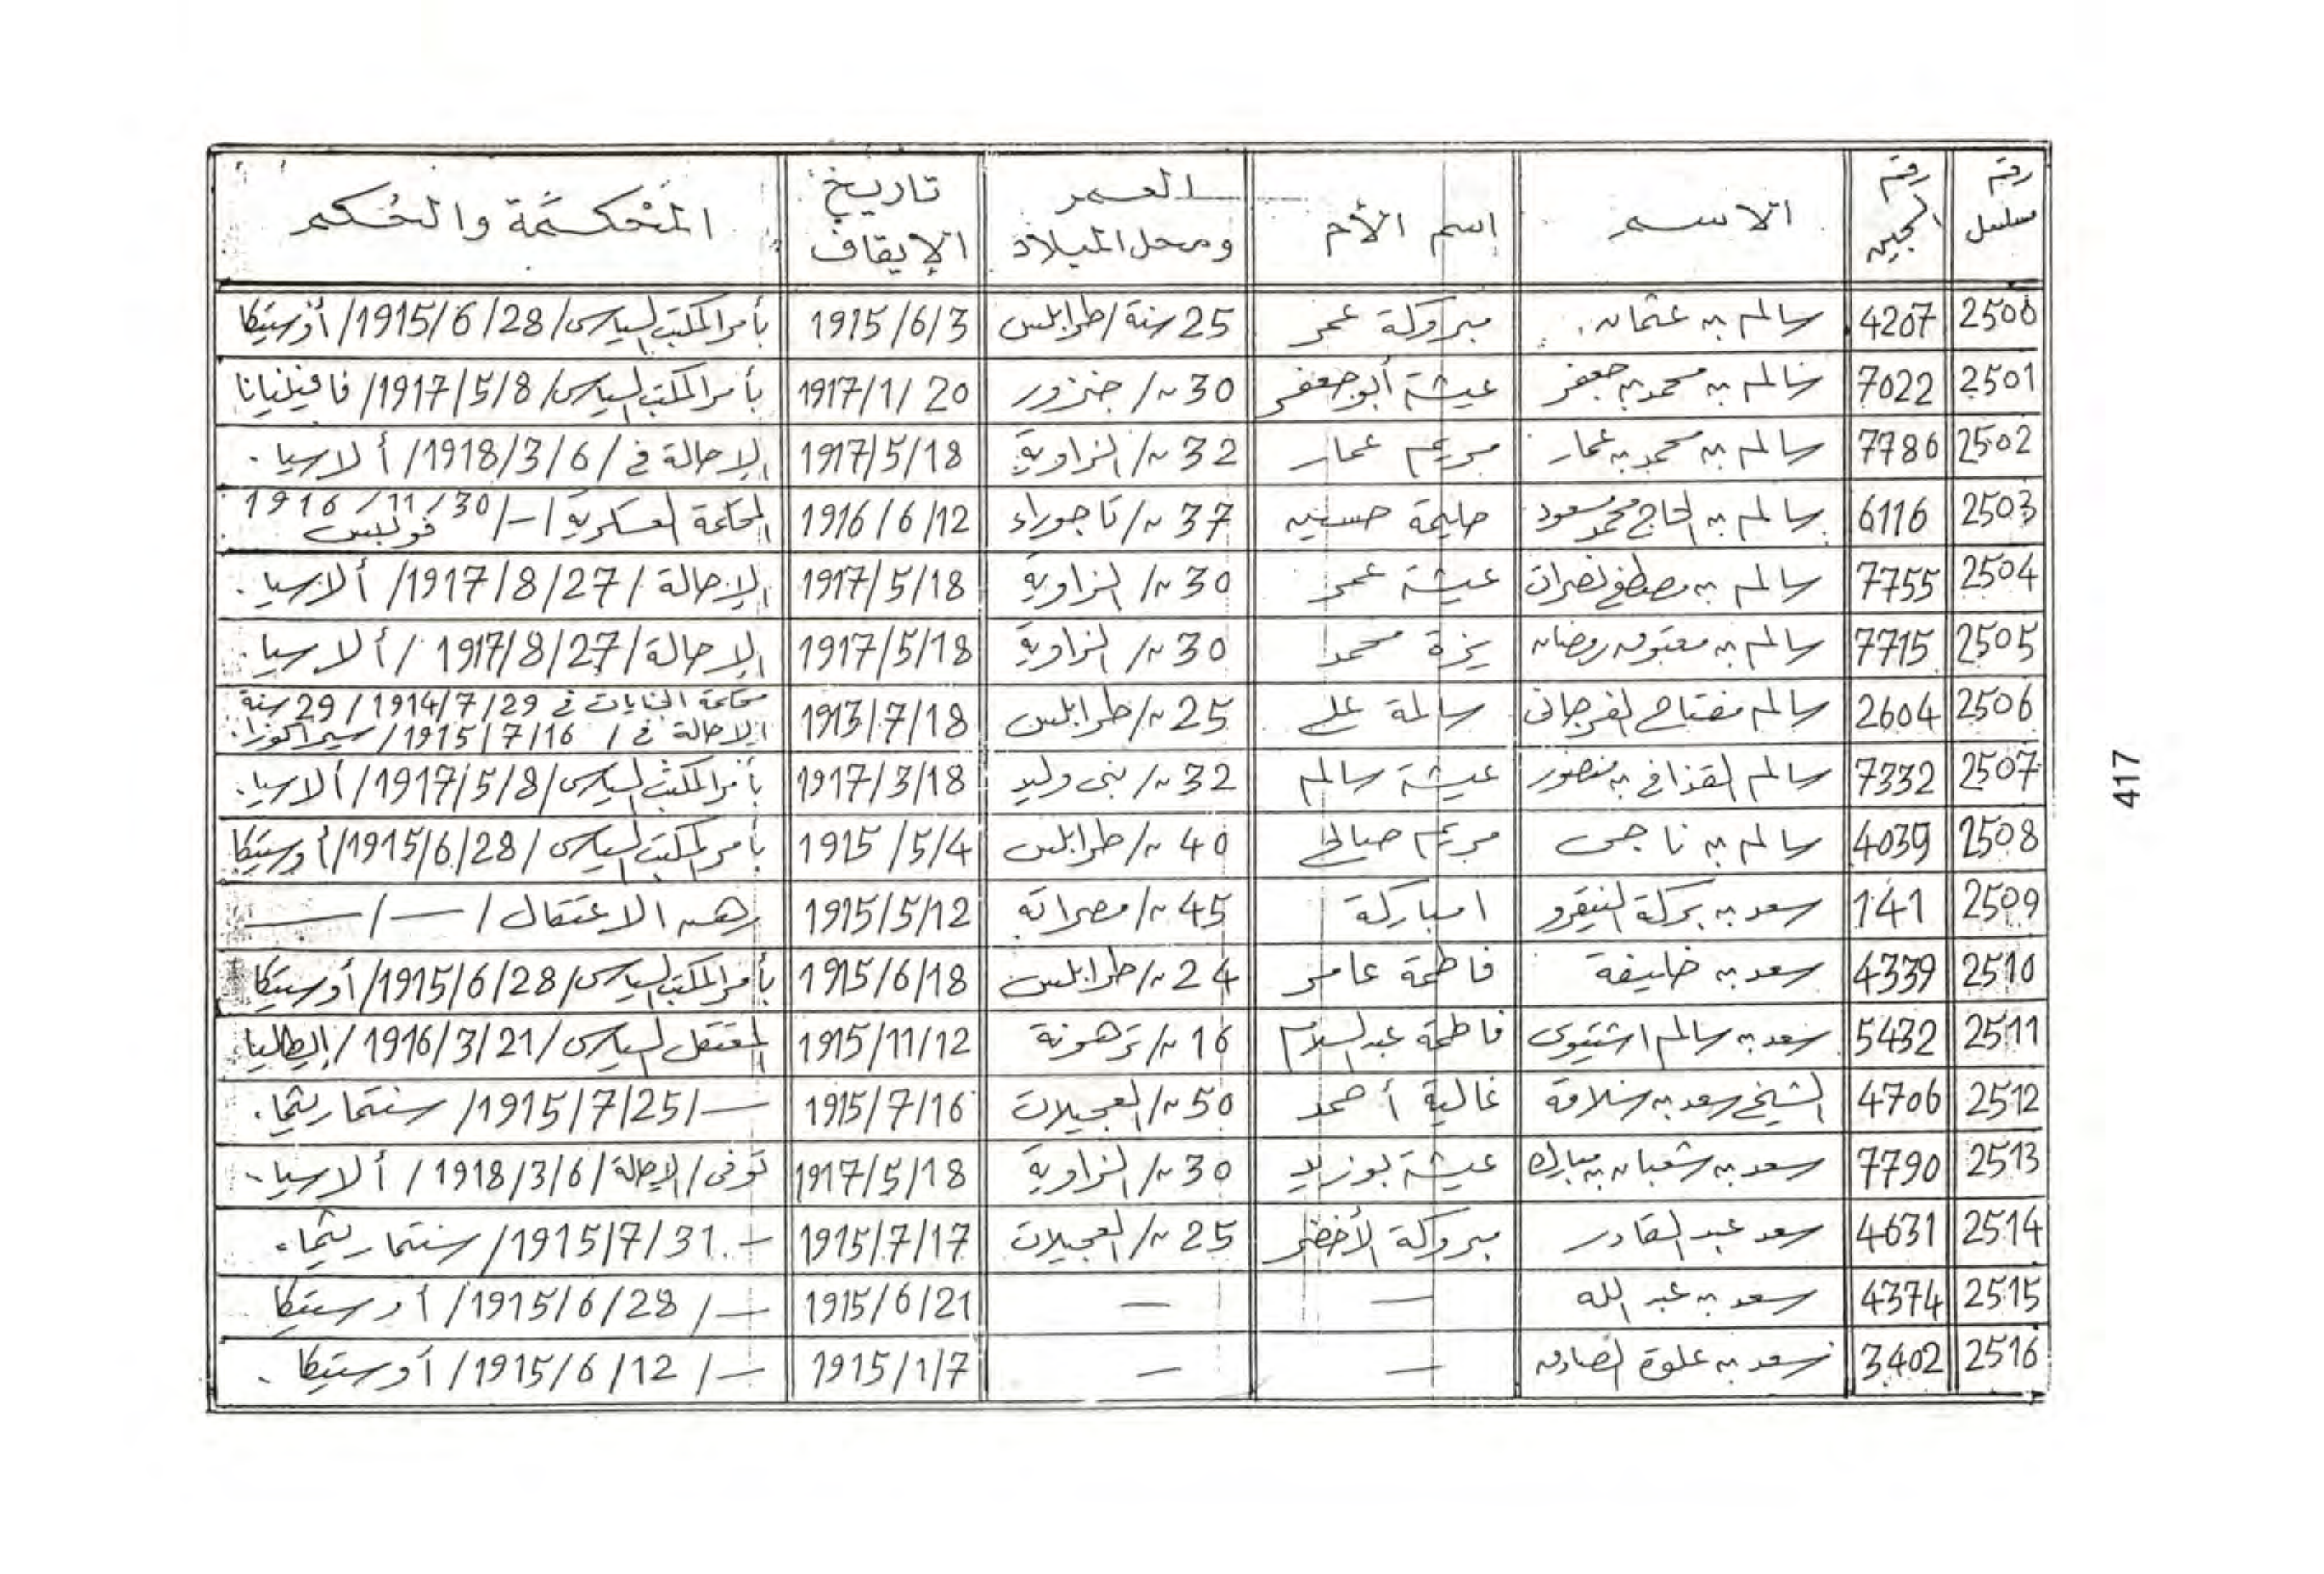 رقم مسلسل | رقم السجين | الاسم | اسم الأم | العمر ومحل الميلاد | تاريخ الإيقاف | المحكمة والحكم
2500 | 4207 | سالم بن عثمان | مبروكة عمر | 25 سنة/طرابلس | 1915/6/3 | بأمر المكتب السياسي/1915/6/28/أوستيكا
2501 | 7022 | سالم بن محمد بن جعفر | عيشة أبو جعفر | 30 //جنزور | 1917/1/20 | بأمر المكتب السياسي/1917/5/8/فافينيانا
2502 | 7786 | سالم بن محمد بن عمار | مريم عمار | 32 //الزاوية | 1917/5/18 | الإحالة في/1918/3/6/ألاسيا.
2503 | 6116 | سالم بن الحاج محمد مسعود | حليمة حسين | 37 //تاجوراء | 1916/6/12 | المحكمة العسكرية/—/1916/11/30 فولبس
2504 | 7755 | سالم بن مصطفى نصرات | عيشة عمر | 30 //الزاوية | 1917/5/18 | الإحالة/1917/8/27/ألاسيا.
2505 | 7715 | سالم بن معتوق رمضان | يزة محمد | 30 //الزاوية | 1917/5/18 | الإحالة/1917/8/27/ألاسيا.
2506 | 2604 | سالم مفتاح الفرجاني | سالمة علي | 25 //طرابلس | 1913/7/18 | محكمة الجنايات في 1914/7/29/29 سنة الإحالة في/1915/7/16/سيراكوزا.
2507 | 7332 | سالم القذافي بن منصور | عيشة سالم | 32 //بني وليد | 1917/3/18 | بأمر المكتب السياسي/1917/5/8/ألاسيا.
2508 | 4039 | سالم بن ناجي | مريم صالح | 40 //طرابلس | 1915/5/4 | بأمر المكتب السياسي/1915/6/28/أوستيكا
2509 | 141 | سعد بن بركة النيقرو | امباركة | 45 //مصراتة | 1915/5/12 | رهن الاعتقال/—/—
2510 | 4339 | سعد بن خليفة | فاطمة عامر | 24 //طرابلس | 1915/6/18 | بأمر المكتب السياسي/1915/6/28/أوستيكا
2511 | 5432 | سعد بن سالم اشتيوي | فاطمة عبد السلام | 16 //ترهونة | 1915/11/12 | المعتقل السياسي/1916/3/21/إيطاليا
2512 | 4706 | الشيخ سعد بن سلامة | غالية أحمد | 50 //العجيلات | 1915/7/16 | —/1915/7/25/سنتماريثما.
2513 | 7790 | سعد بن شعبان بن مبارك | عيشة بوزيد | 30 //الزاوية | 1917/5/18 | توفى/الإحالة/1918/3/6/ألاسيا.
2514 | 4631 | سعد عبد القادر | مبروكة الأخضر | 25 //العجيلات | 1915/7/17 | —/1915/7/31/سنتماريثما.
2515 | 4374 | سعد بن عبد الله | — | — | 1915/6/21 | —/1915/6/28/أوستيكا
2516 | 3402 | سعد بن علوة الصادق | — | — | 1915/1/7 | —/1915/6/12/أوستيكا.
417